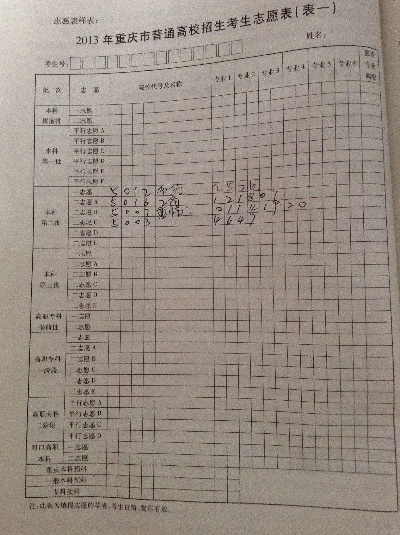 志愿表样表:
2013年重庆市普通高校招生考生志愿表(表一)
考生号: 姓名:
批次 志愿 院校代号及名称 专业1 专业2 专业3 专业4 专业5 专业6
本科
提前批
一志愿
二志愿
本科
第一批
平行志愿A
平行志愿B
平行志愿C
平行志愿D
平行志愿E
本科
第二批
一志愿 5012
二志愿A 5016
二志愿B
二志愿C 5003
二志愿D
二志愿E
本科
第三批
一志愿
二志愿A
二志愿B
二志愿C
二志愿D
二志愿E
高职专科
提前批
一志愿
二志愿
高职专科
一阶段
一志愿
二志愿A
二志愿B
二志愿C
二志愿D
二志愿E
高职专科
二阶段
平行志愿A
平行志愿B
平行志愿C
平行志愿D
对口高职
本科
一志愿
二志愿
重点本科预科
一般本科预科
专科预科
注:此表为填报志愿的草表,考生自留,复印有效。